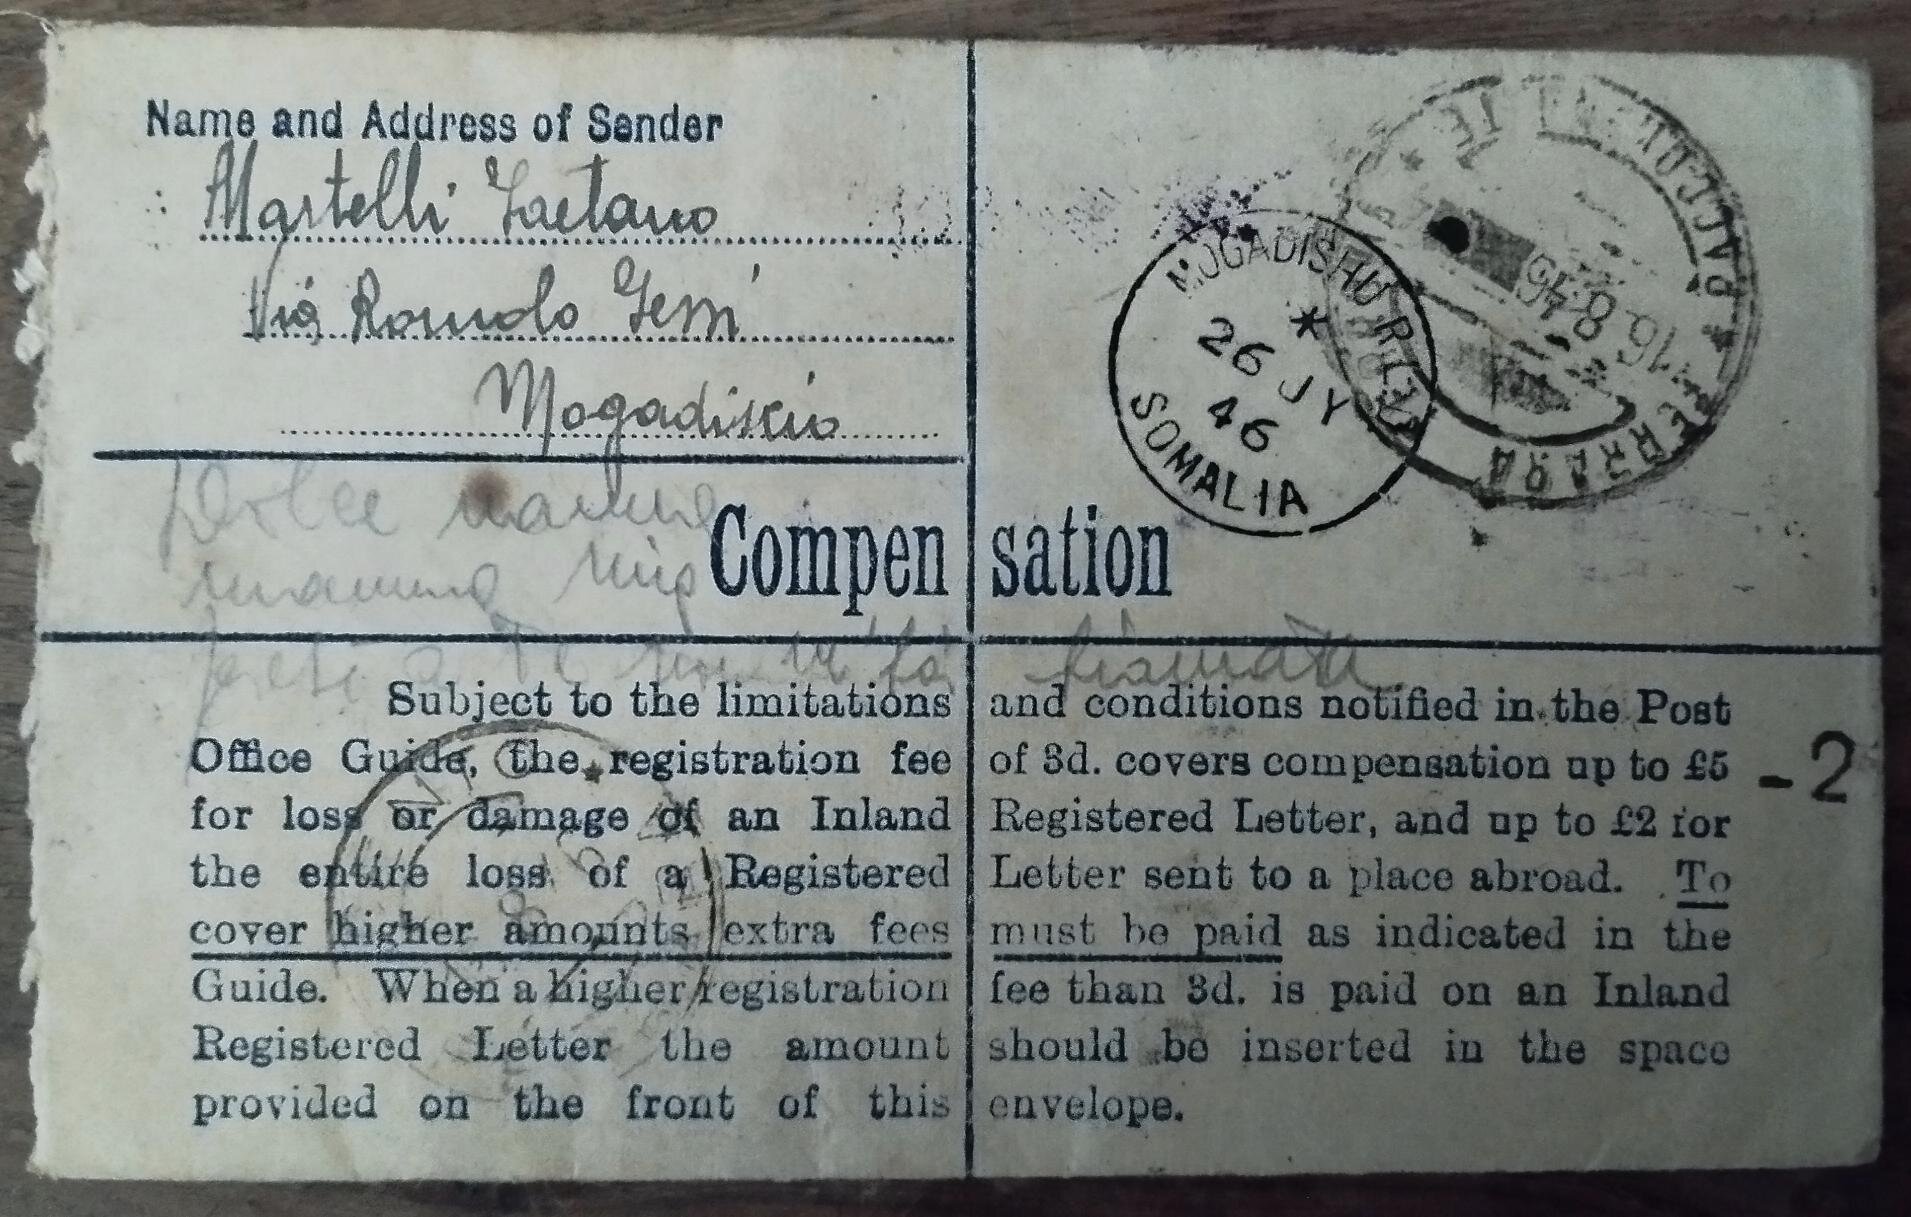 Name and Address of Sender
Martelli Gaetano
Via Romolo Gessi
Mogadiscio
MOGADISHU
*
26 JY
46
SOMALIA
RACCOMAN
TE
16.8.46
FERRARA
Dolce mamma
mamma mia
Compensation
a Te
Subject to the limitations and conditions notified in the Post
Office Guide, the registration fee of 3d. covers compensation up to £5
for loss or damage of an Inland Registered Letter, and up to £2 for
the entire loss of a Registered Letter sent to a place abroad. To
cover higher amounts extra fees must be paid as indicated in the
Guide. When a higher registration fee than 3d. is paid on an Inland
Registered Letter the amount should be inserted in the space
provided on the front of this envelope.
-2